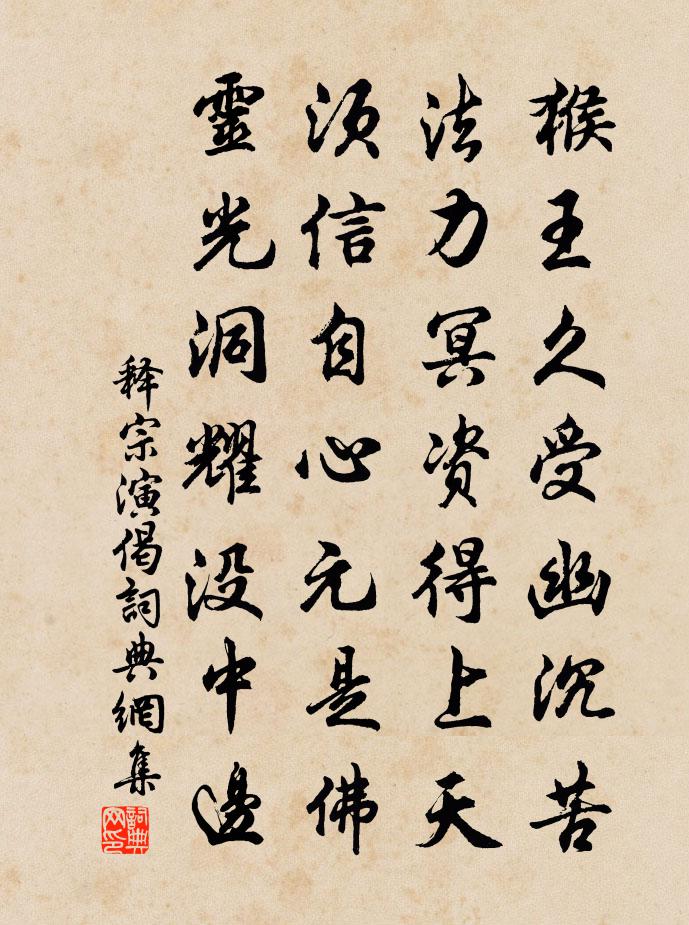 猴王久受幽沉苦
法力冥资得上天
须信自心元是佛
靈光洞耀没中邊
释宗演偈詞典網集
詞典网印